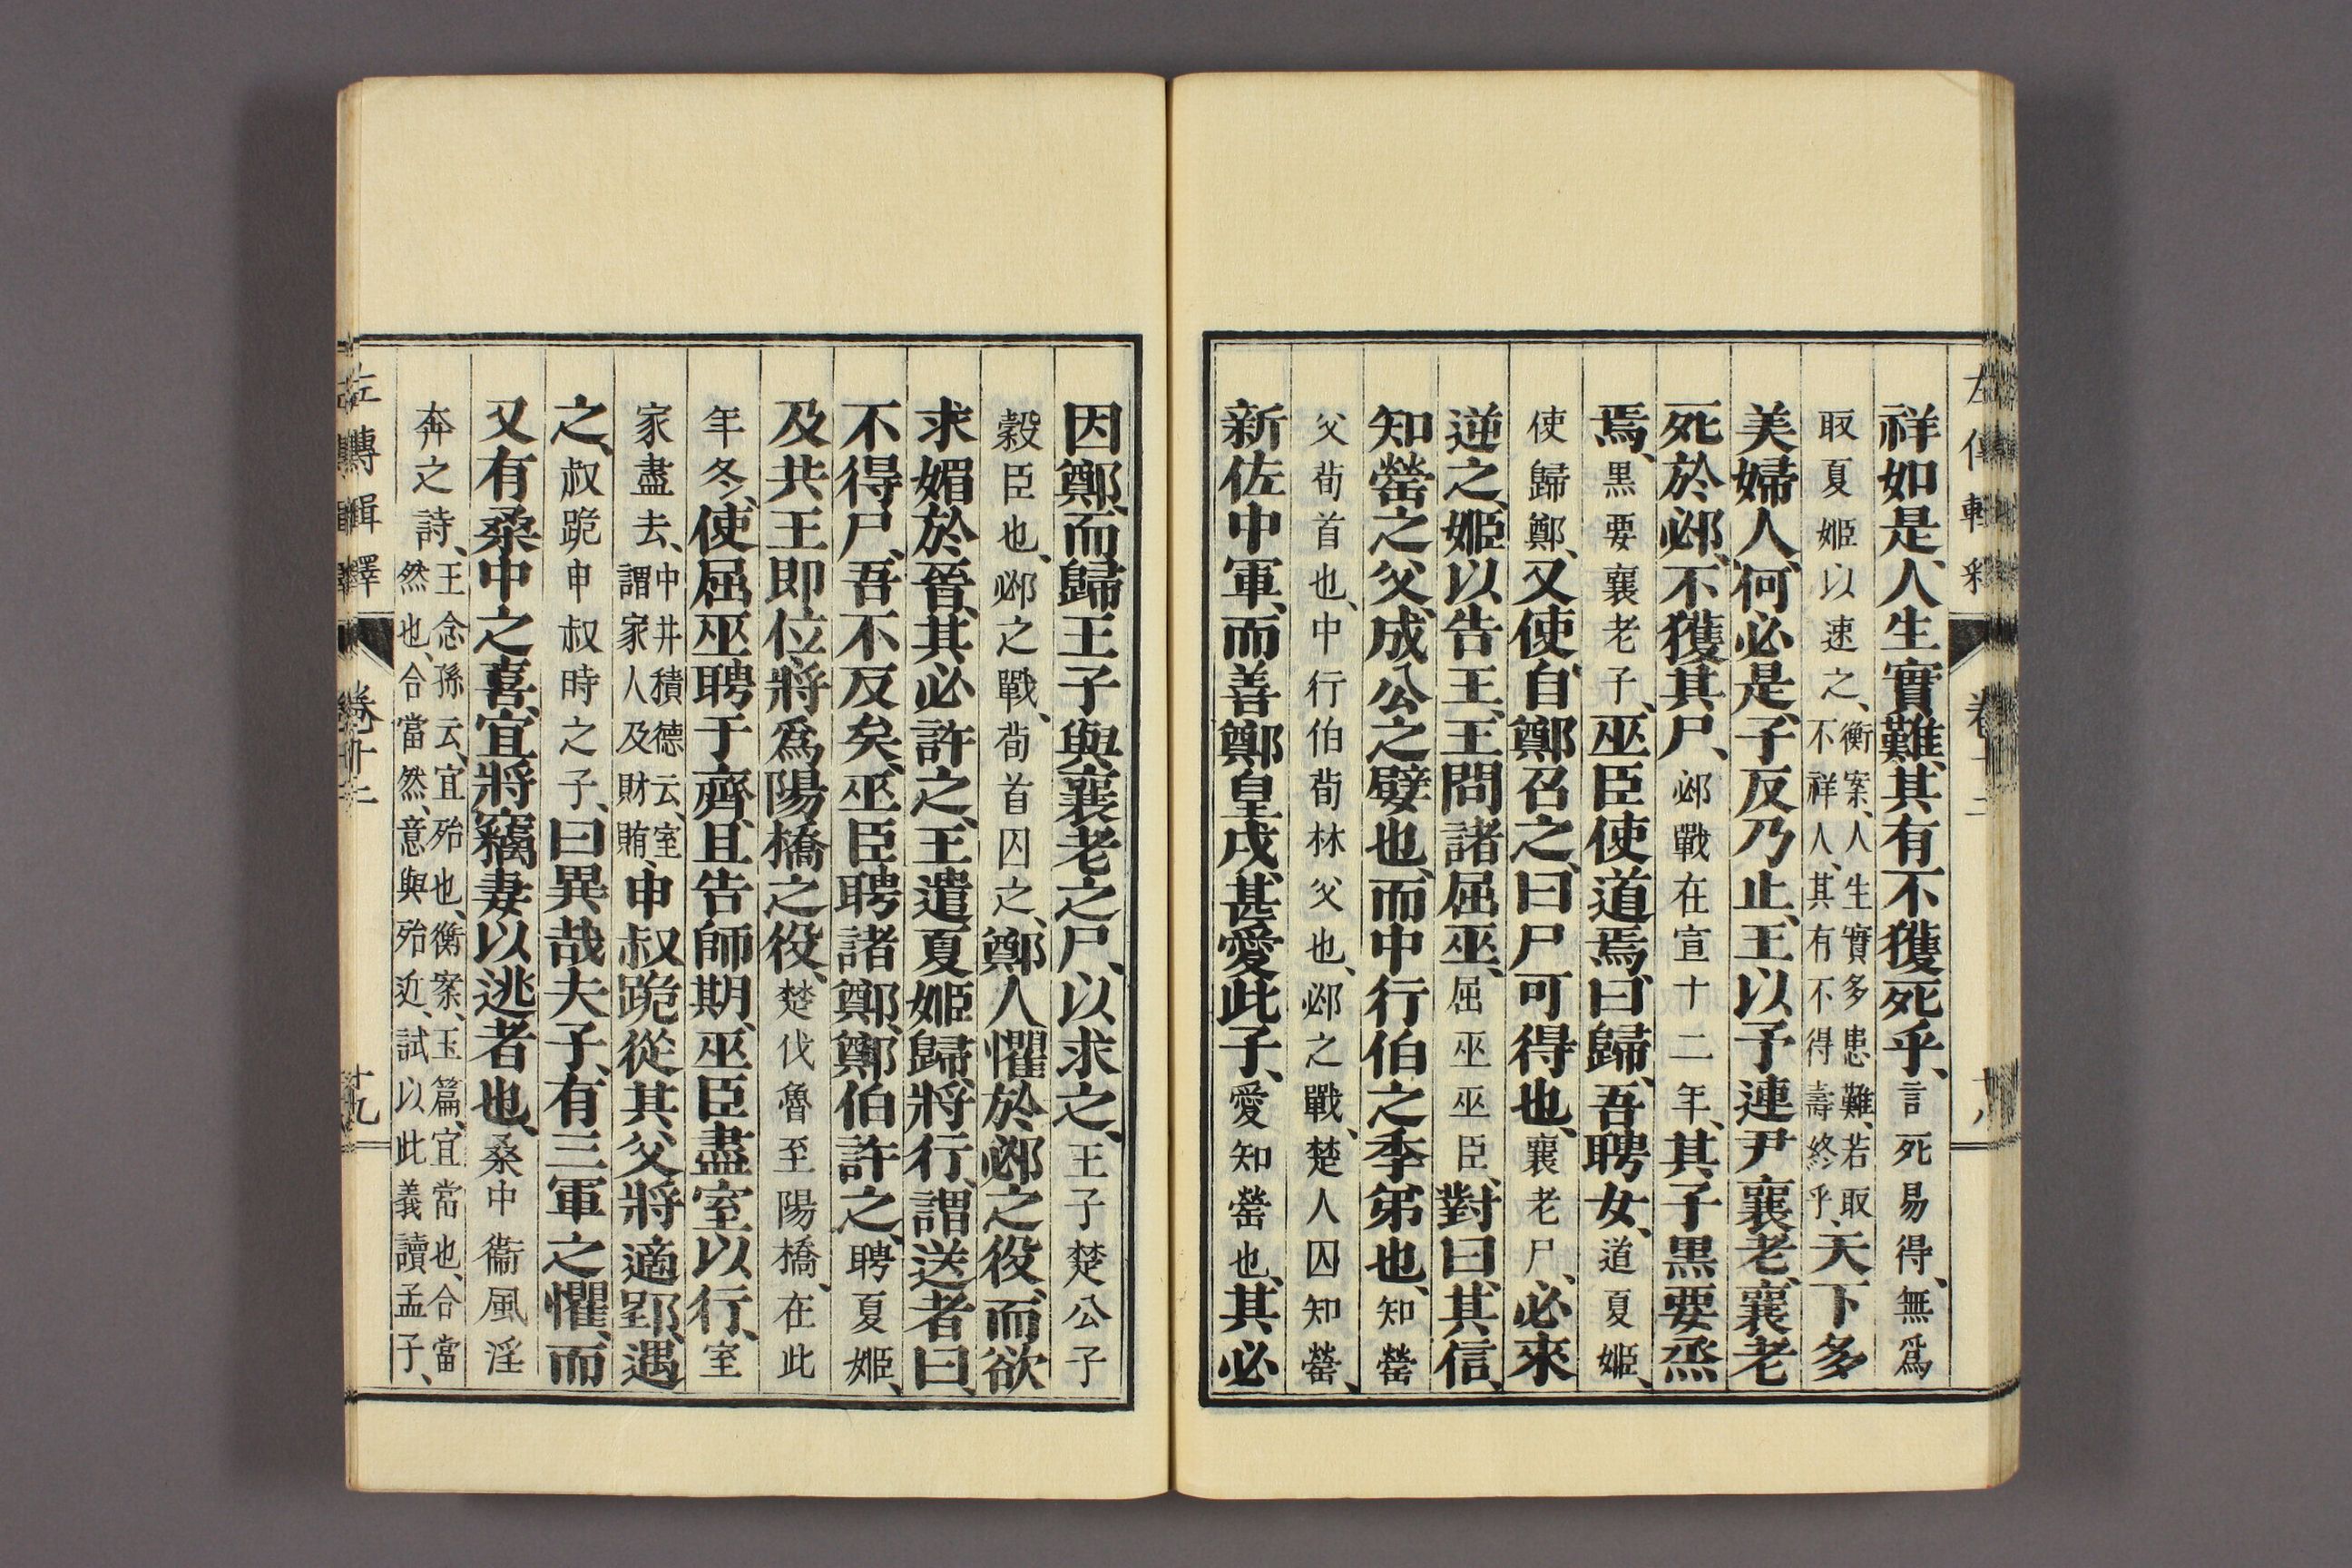 祥如是、人生實難、其有不獲死乎、言死易得、無爲
取夏姬以速之、衡案、人生實多患難、若取不祥人、其有不得壽終乎、天下多
美婦人、何必是、子反乃止、王以予連尹襄老、襄老
死於邲、不獲其尸、邲戰在宣十二年、其子黑要烝
焉、黑要襄老子、巫臣使道焉、曰歸、吾聘女、道夏姬、
使歸鄭、又使自鄭召之、曰尸可得也、襄老尸、必來
逆之、姬以告王、王問諸屈巫、屈巫巫臣、對曰、其信、
知罃之父、成公之嬖也、而中行伯之季弟也、知罃
父荀首也、中行伯荀林父也、邲之戰、楚人囚知罃、
新佐中軍、而善鄭皇戌、甚愛此子、愛知罃也、其必
因鄭、而歸王子與襄老之尸、以求之、王子楚公子
穀臣也、邲之戰、荀首囚之、鄭人懼於邲之役、而欲
求媚於晉、其必許之、王遣夏姬歸、將行、謂送者曰、
不得尸、吾不反矣、巫臣聘諸鄭、鄭伯許之、聘夏姬、
及共王即位、將爲陽橋之役、楚伐魯至陽橋、在此
年冬、使屈巫聘于齊、且告師期、巫臣盡室以行、室
家盡去、中井積德云、室謂家人及財賄、申叔跪從其父、將適郢、遇
之、叔跪申叔時之子、曰異哉夫子、有三軍之懼、而
又有桑中之喜、宜將竊妻以逃者也、桑中衞風淫
奔之詩、王念孫云、宜殆也、衡案、玉篇、宜當也、合當然也、合當然、意與殆近、試以此義讀孟子、
左傳輯釋 卷十二 十九